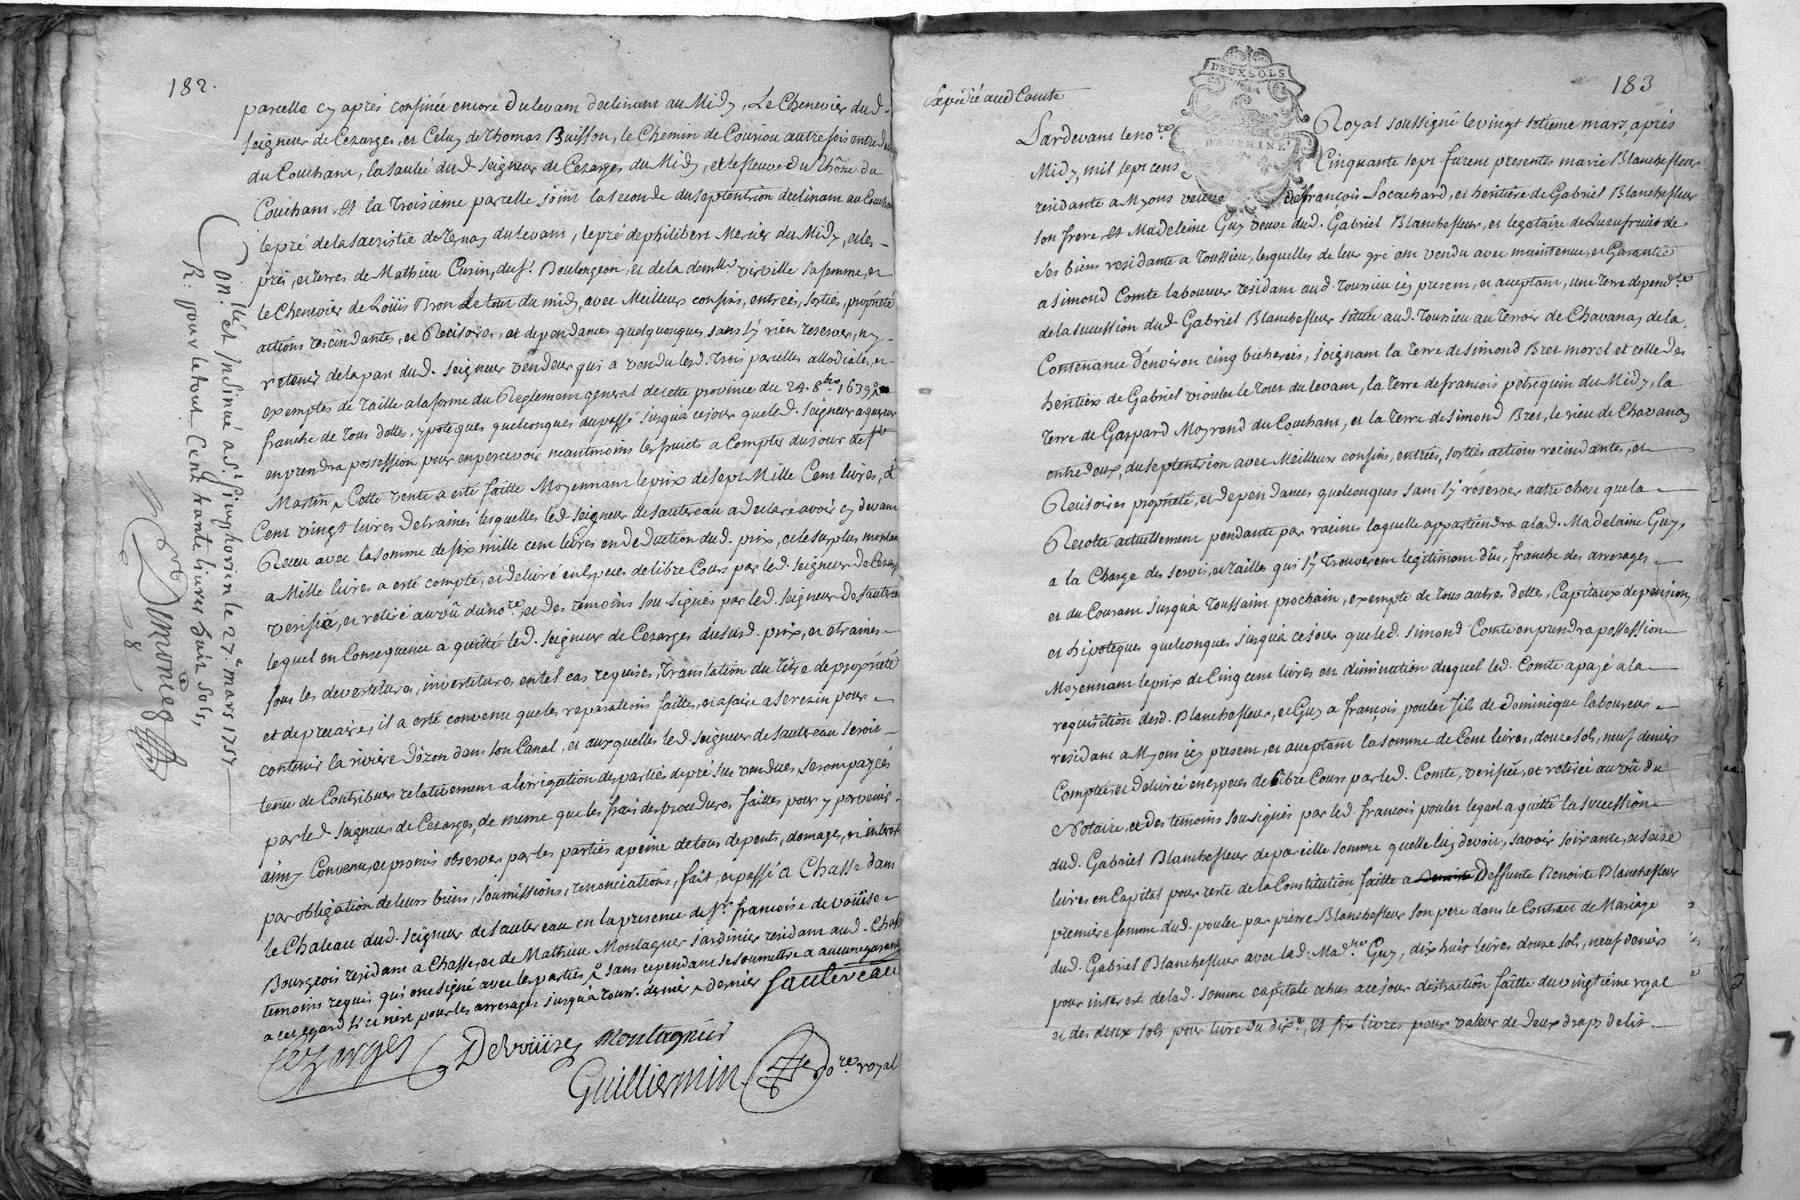 182.
parcelle cy aprés confinée encore du levant declinant au Midy, Le Chenevier dud.
seigneur de Cezarges, et Celuy de Thomas Buisson, le Chemin de Couriou autrefois entre deux
du Couchant, la saulée dud. seigneur de Cezarges du Midy, et le fleuve du Rhône du
Couchant. Et la troisieme parcelle joint la seconde du septentrion declinant au Couchant
le pré de la sacristie de Ternay du levant, le pré de philibert Mercier du Midy, et les
prés, et terres de Mathieu Curin, du sr. Boulongeon, et de la demlle. virville sa femme, et
le Chenevier de Loüis Bron Le tout du midy, avec Meilleurs confins, entrées, sorties, proprieté
actions rescindantes, et Recisoires, et dependances quelquonques sans s'y rien reserver, ny
retenir de la part dud. seigneur vendeur qui a vendu lesd. trois parcelles allodiale, et
exemptes de taille a la forme du Reglement general de cette province du 24. 8bre 1639
franche de tous dettes, ypoteques quelconques du passé jusqu'à ce jour que led. seigneur aquereur
en prendra possession pour en percevoir neantmoins les fruits a Compter du jour de st
Martin, Cette vente a esté faitte Moyennant le prix de sept Mille Cent livres, &
Cent vingt livres d'etraines lesquelles led. seigneur de sautereau a declaré avoir cy devant
Receu avec la somme de six mille cent livres en deduction dud. prix, et le surplus montant
a Mille livres a esté compté, et delivré en Especes de libre Cours par led. seigneur de Cezarges
verifié, et retiré au vû du nore, et des témoins sous signés par led. seigneur de Sautereau
lequel en Consequence a quitté led. seigneur de Cezarges du susd. prix, et etraines
sous les devertitures, investitures en tel cas requises, translation du titre de proprieté
et de precaire, il a esté convenu que les reparations faittes, et a faire a Serezin pour
contenir la riviere d'ozon dans son Canal, et auxquelles led. seigneur de sautereau seroit
tenu de Contribuer relativement a l'irrigation des parties de pré sus vendues, seront payées
par led. seigneur de Cezarges, de meme que les frais de procedures faittes pour y parvenir
ainsy Convenu, et promis observer par les parties a peine de tous depents, domage, et interets
par obligation de leurs biens, soumissions, renonciations, fait, et passé a Chasse dans
le Chateau dud. seigneur de sautereau en la presence de sr. francois de voüise
Bourgeois residant a Chasse, et de Mathieu Montagner jardinier residant aud. Chasse
temoins requis qui ont signé avec les parties, sans cependant se soumettre a aucune garantie
a cet egard si ce n'est pour les arrerages jusqu'à touss. dernier dernier Sautereau
Cezarges Devoüise Montagnier
Guilliermin nore. royal
Onllé et Insinué a St. Simphorien le 27e mars 1757
R: pour le tout Cent trante livres huit sols,
183
Expedié aud Comte
DEUX SOLS
DAUPHINÉ
Pardevant le nore Royal soussigné le vingt setieme mars, aprés
Midy, mil sept cens Cinquante sept furent presentes marie Blanchefleur
residante a Myons veuve de françois Socachard, et heritière de Gabriel Blanchefleur
son frere, et Madeleine Guy veuve dud. Gabriel Blanchefleur, et legataire de l'uzufruit de
ses biens residante a Toussieu, lesquelles de leur gré ont vendu avec maintenue, et Garantie
a simond Comte laboureur residant aud. Toussieu icy present, et aceptant, une terre dependte
de la sucession dud. Gabriel Blanchefleur située aud. Toussieu au Terroir de Chavanay de la
Contenance d'environ cinq bicherées, joignant la terre de simond Bret morel et celle des
heritiers de Gabriel vioulet le tout du levant, la terre de francois petrequin du Midy, la
terre de Gaspard Mayrand du Couchant, et la terre de Simond Bret, le rieu de Chavanay
entre deux, du septentrion avec Meilleurs confins, entrées, sorties actions recindantes, et
Recisoires proprieté, et dependances quelconques sans s'y réserver autre chose que la
Recolte actuellement pendante par racines laquelle appartiendra a lad. Madelaine Guy,
a la Charge des servis, et tailles qui s'y trouveront legitimemt dûs, franche des arrerages
et du Courant jusqu'à Toussaint prochain, exempte de tous autres dettes, Capitaux de pensions,
et hipoteques quelconques jusqu'à ce jour que led. simond Comte en prendra possession
Moyennant le prix de Cinq cent livres en diminution duquel led. Comte a payé a la
requisition desd. Blanchefleur, et Guy a françois poulet fils de dominique laboureur
residant a Myons icy present, et aceptant la somme de Cent livres, douze sols, neuf deniers
Comptée et delivrée en especes de libre Cours par led. Comte, verifiée, et retirée au vû du
Notaire, et des temoins sousignés par led. francois poulet lequel a quitté la succession
dud. Gabriel Blanchefleur de pareille somme quelle luy devoit, savoir soixante, et seize
livres en Capital pour reste de la Constitution faitte a Deffunte Benoiste Blanchefleur
premiere femme dud. poulet par pierre Blanchefleur son pere dans le Contrat de Mariage
dud. Gabriel Blanchefleur avec lad. Madne. Guy, dix huit livres douze sols, neuf deniers
pour interest de lad. somme capitale echus a ce jour distraction faitte du vingtième royal
et des deux sols pour livre du dixe, et six livres pour valeur de deux draps de lit